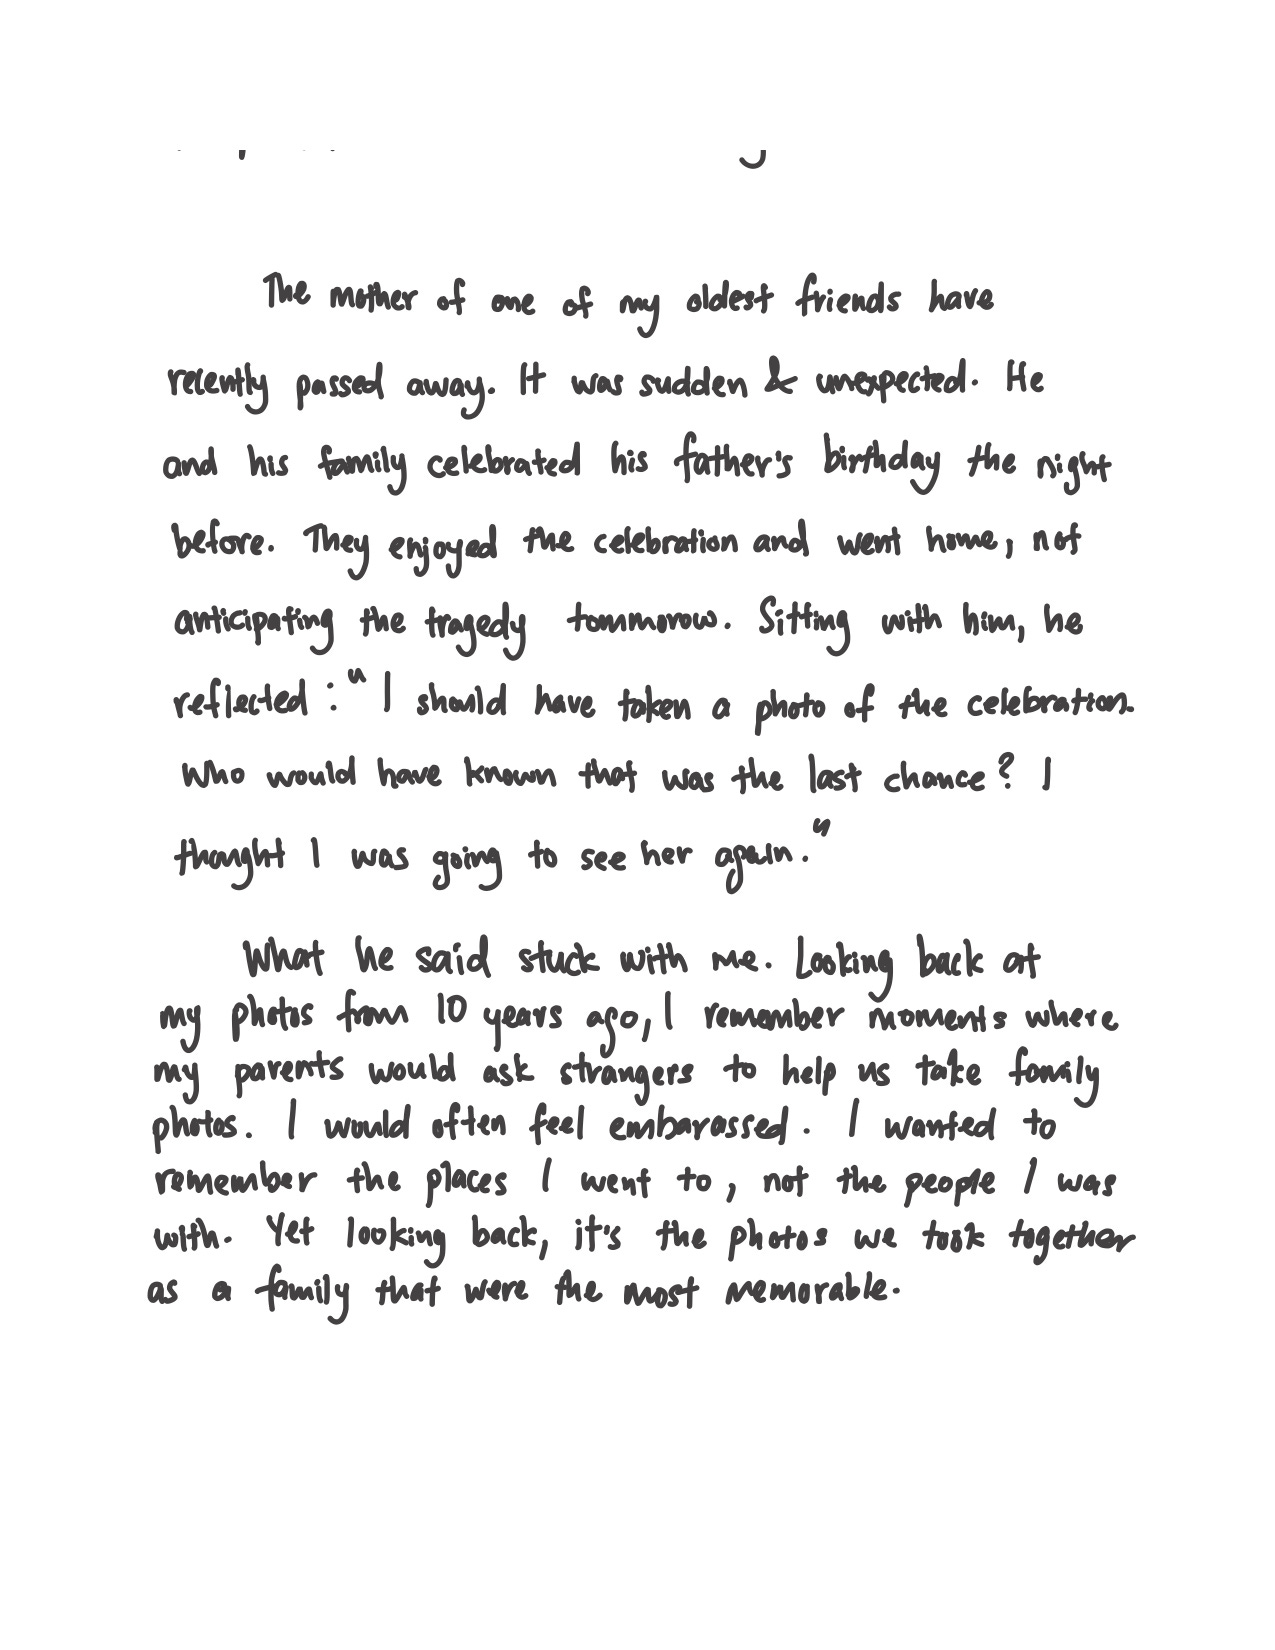 The mother of one of my oldest friends have
recently passed away. It was sudden & unexpected. He
and his family celebrated his father's birthday the night
before. They enjoyed the celebration and went home, not
anticipating the tragedy tommorow. Sitting with him, he
reflected : "I should have taken a photo of the celebration.
Who would have known that was the last chance? I
thought I was going to see her again."
What he said stuck with me. Looking back at
my photos from 10 years ago, I remember moments where
my parents would ask strangers to help us take family
photos. I would often feel embarassed. I wanted to
remember the places I went to, not the people I was
with. Yet looking back, it's the photos we took together
as a family that were the most memorable.